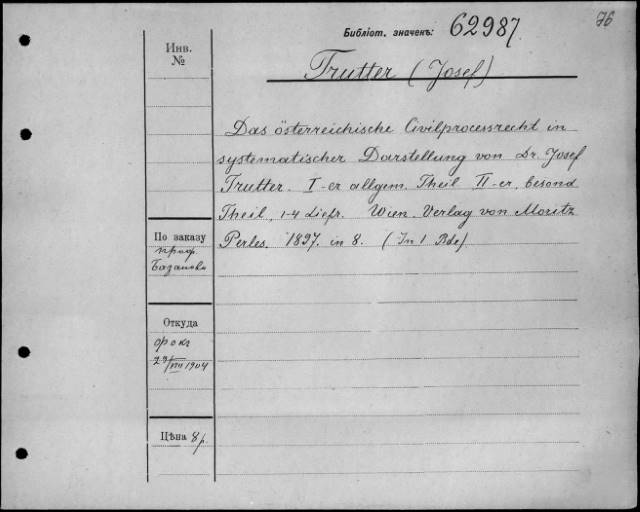 76
Библіот. значекъ: 62987.
Инв.
№
Trutter (Josef)
Das österreichische Civilprocessrecht in
systematischer Darstellung von Dr. Josef
Trutter. I-er allgem. Theil II-er, besond
Theil, 1-4 Liefr. Wien. Verlag von Moritz
Perles. 1897. in 8. (In 1 Bde)
По заказу
проф.
Базанова
Откуда
Фокъ
29/VIII 1904
Цѣна 8 р.